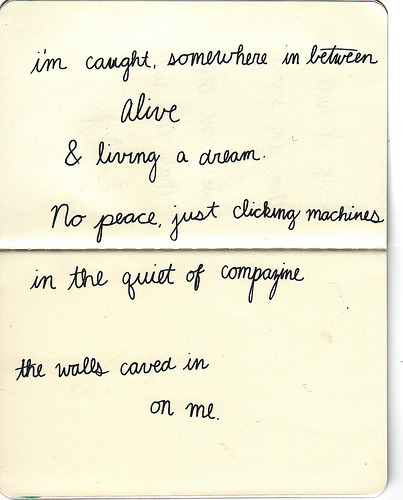 i'm caught, somewhere in between
Alive
& living a dream.
No peace, just clicking machines
in the quiet of compazine
the walls caved in
on me.